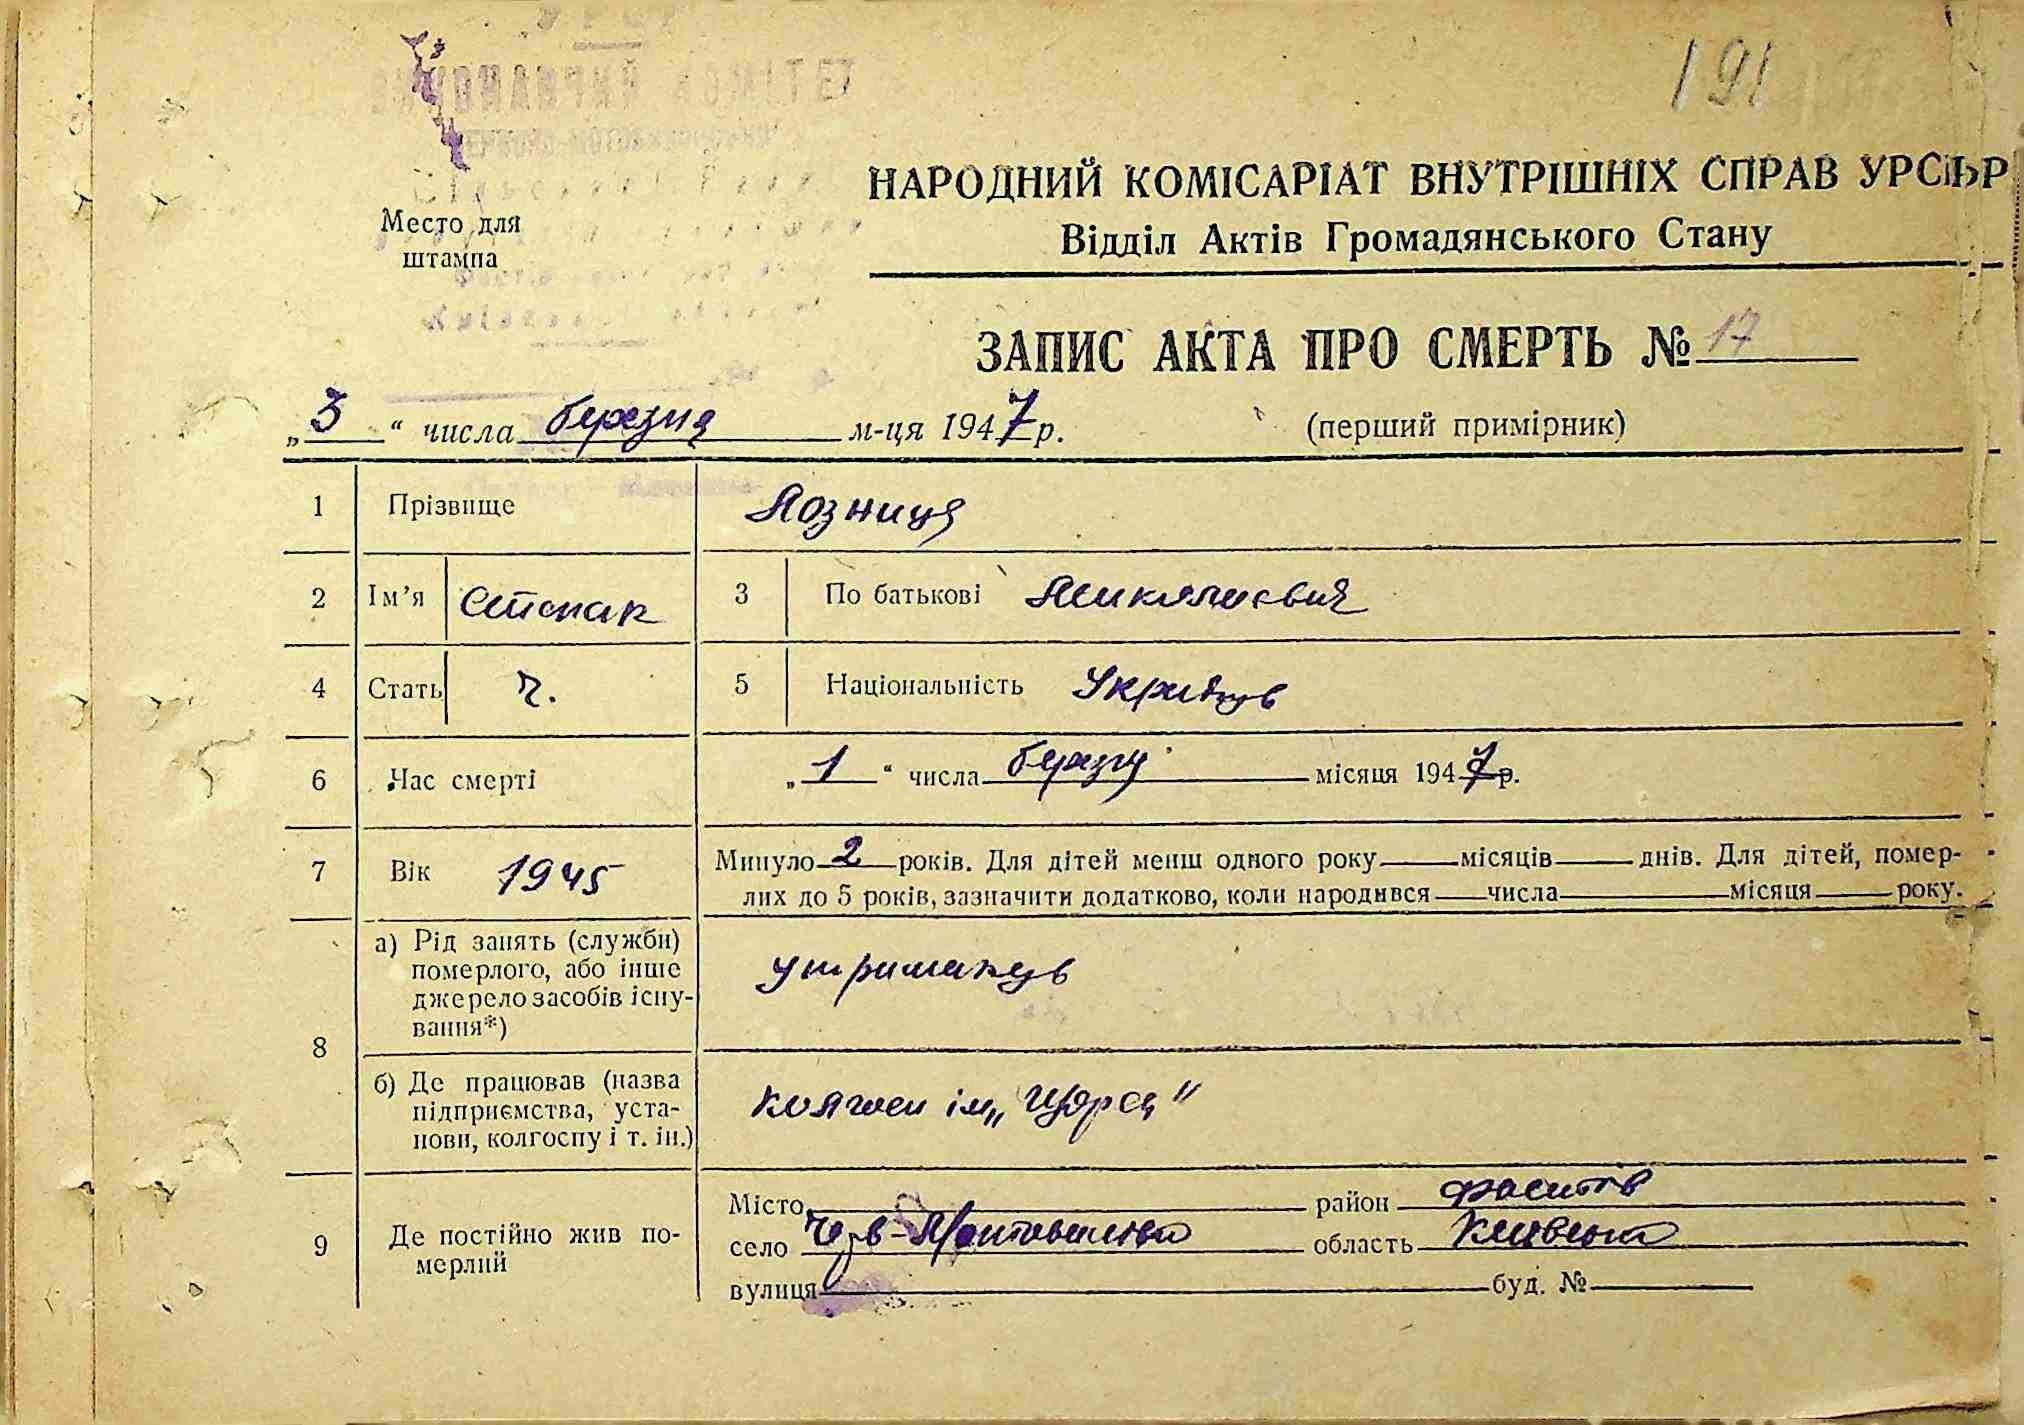 191
НАРОДНИЙ КОМІСАРІАТ ВНУТРІШНІХ СПРАВ УРСР
Відділ Актів Громадянського Стану
Место для
штампа
ЗАПИС АКТА ПРО СМЕРТЬ № 17
„3“ числа березня м-ця 1947 р.
(перший примірник)
1 Прізвище Лозниця
2 Ім’я Степан 3 По батькові Миколаєвич
4 Стать ч. 5 Національність Українець
6 Час смерті „1“ числа березня місяця 1947 р.
7 Вік 1945 Минуло 2 років. Для дітей менш одного року місяців днів. Для дітей, помер-
лих до 5 років, зазначити додатково, коли народився числа місяця року.
8 а) Рід занять (служби)
померлого, або інше
джерело засобів існу-
вання*)
утриманець
б) Де працював (назва
підприємства, уста-
нови, колгоспу і т. ін.)
колгосп ім „Щорса“
9 Де постійно жив по-
мерлий
Місто район Фастів
село Черв-Мотовилівка область Київська
вулиця буд. №